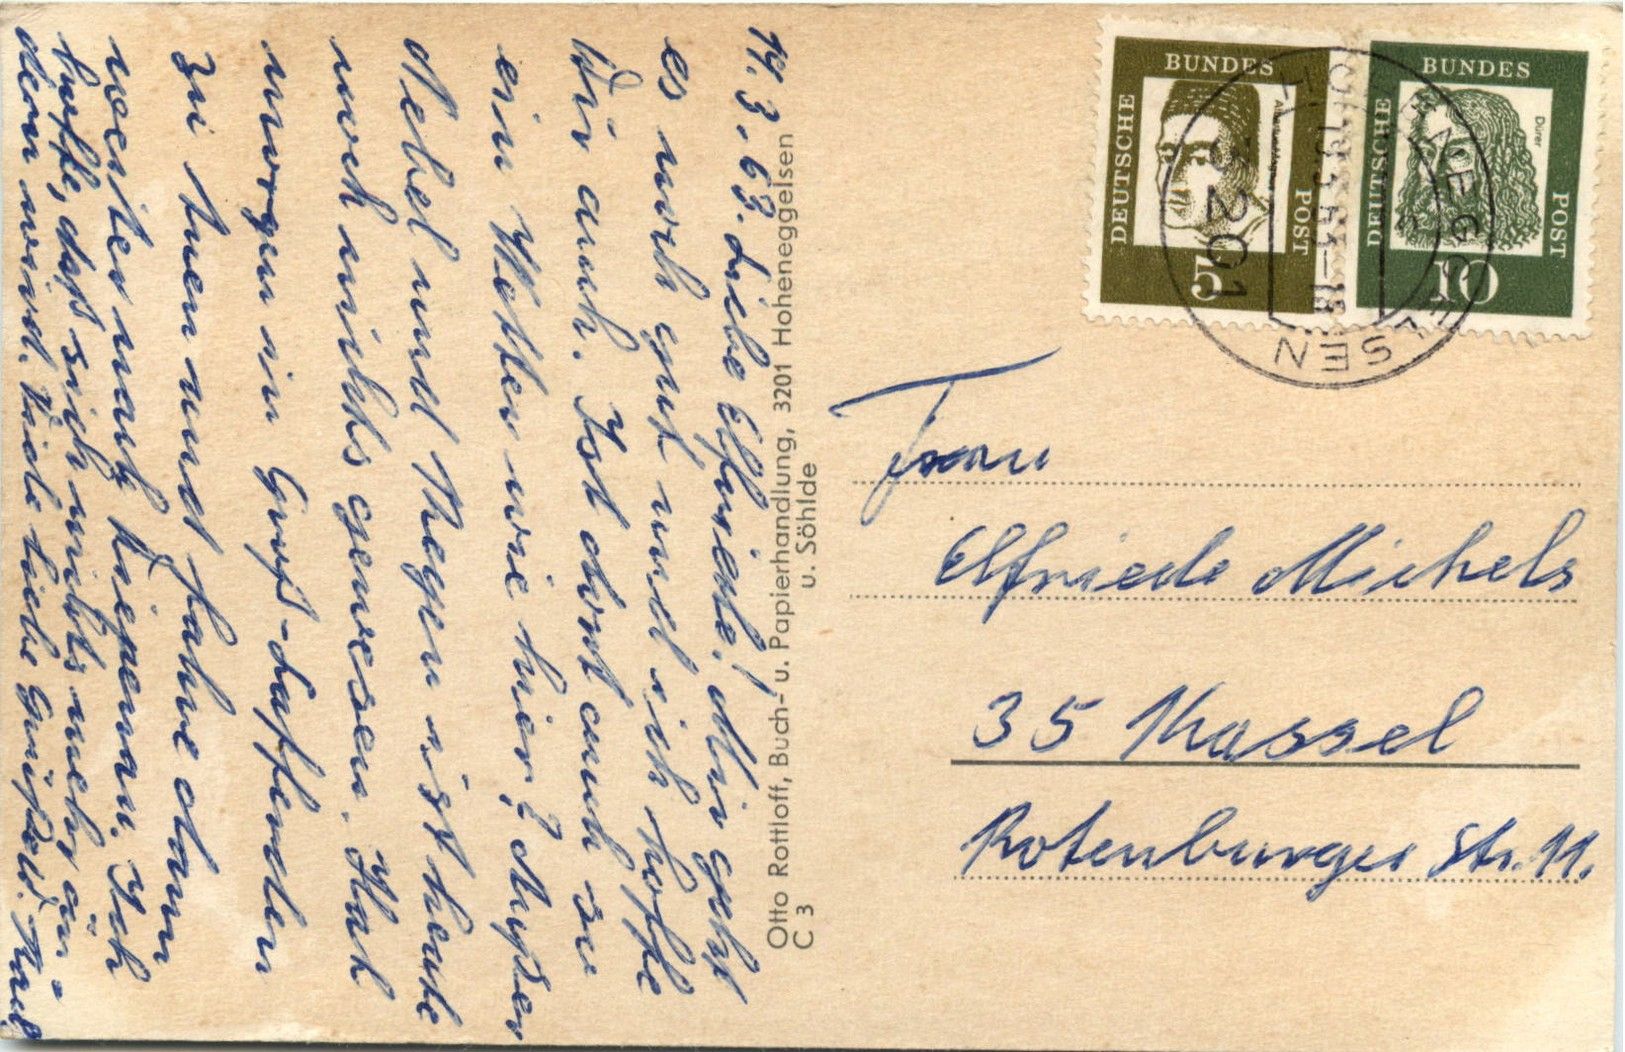 14.3.63. Liebe Elfriede! Mir geht
es noch gut und ich hoffe
Dir auch. Ist dort auch so
ein Wetter wie hier? Außer
Nebel und Regen ist heute
noch nichts gewesen. Hab
morgen in Groß-Lafferde
zu tuen und fahre dann
weiter nach. Ich
hoffe, daß sich nichts mehr än-
dern wird. Viele liebe Grüße
Otto Rottloff, Buch- u. Papierhandlung, 3201 Hoheneggelsen
u. Söhlde
C 3
DEUTSCHE
BUNDES
POST
Albertus Magnus
5
DEUTSCHE
BUNDES
POST
Dürer
10
HOHENEGGELSEN
3201
Frau
Elfriede Michels
35 Kassel
Rotenburger Str. 11.